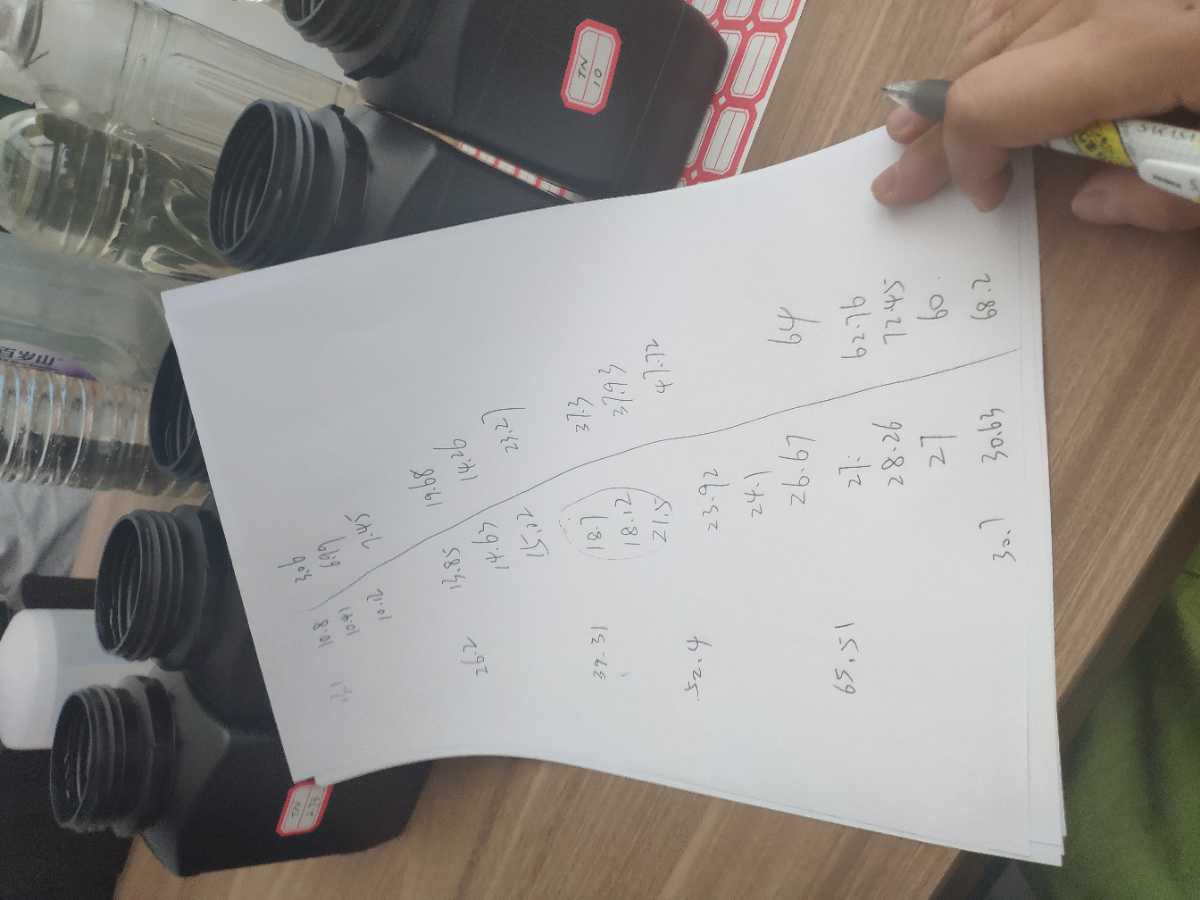 TN
10
3.06
6.99
7.45
19.68
14.26
23.27
37.3
37.93
47.72
64
62.76
72.45
60.
68.2
10.8
10.41
10.12
13.85
14.63
15.12
18.7
18.12
21.5
23.92
24.1
26.67
27.
28.26
27
30.63
30.7
26.2
37.31
52.4
65.51
TN